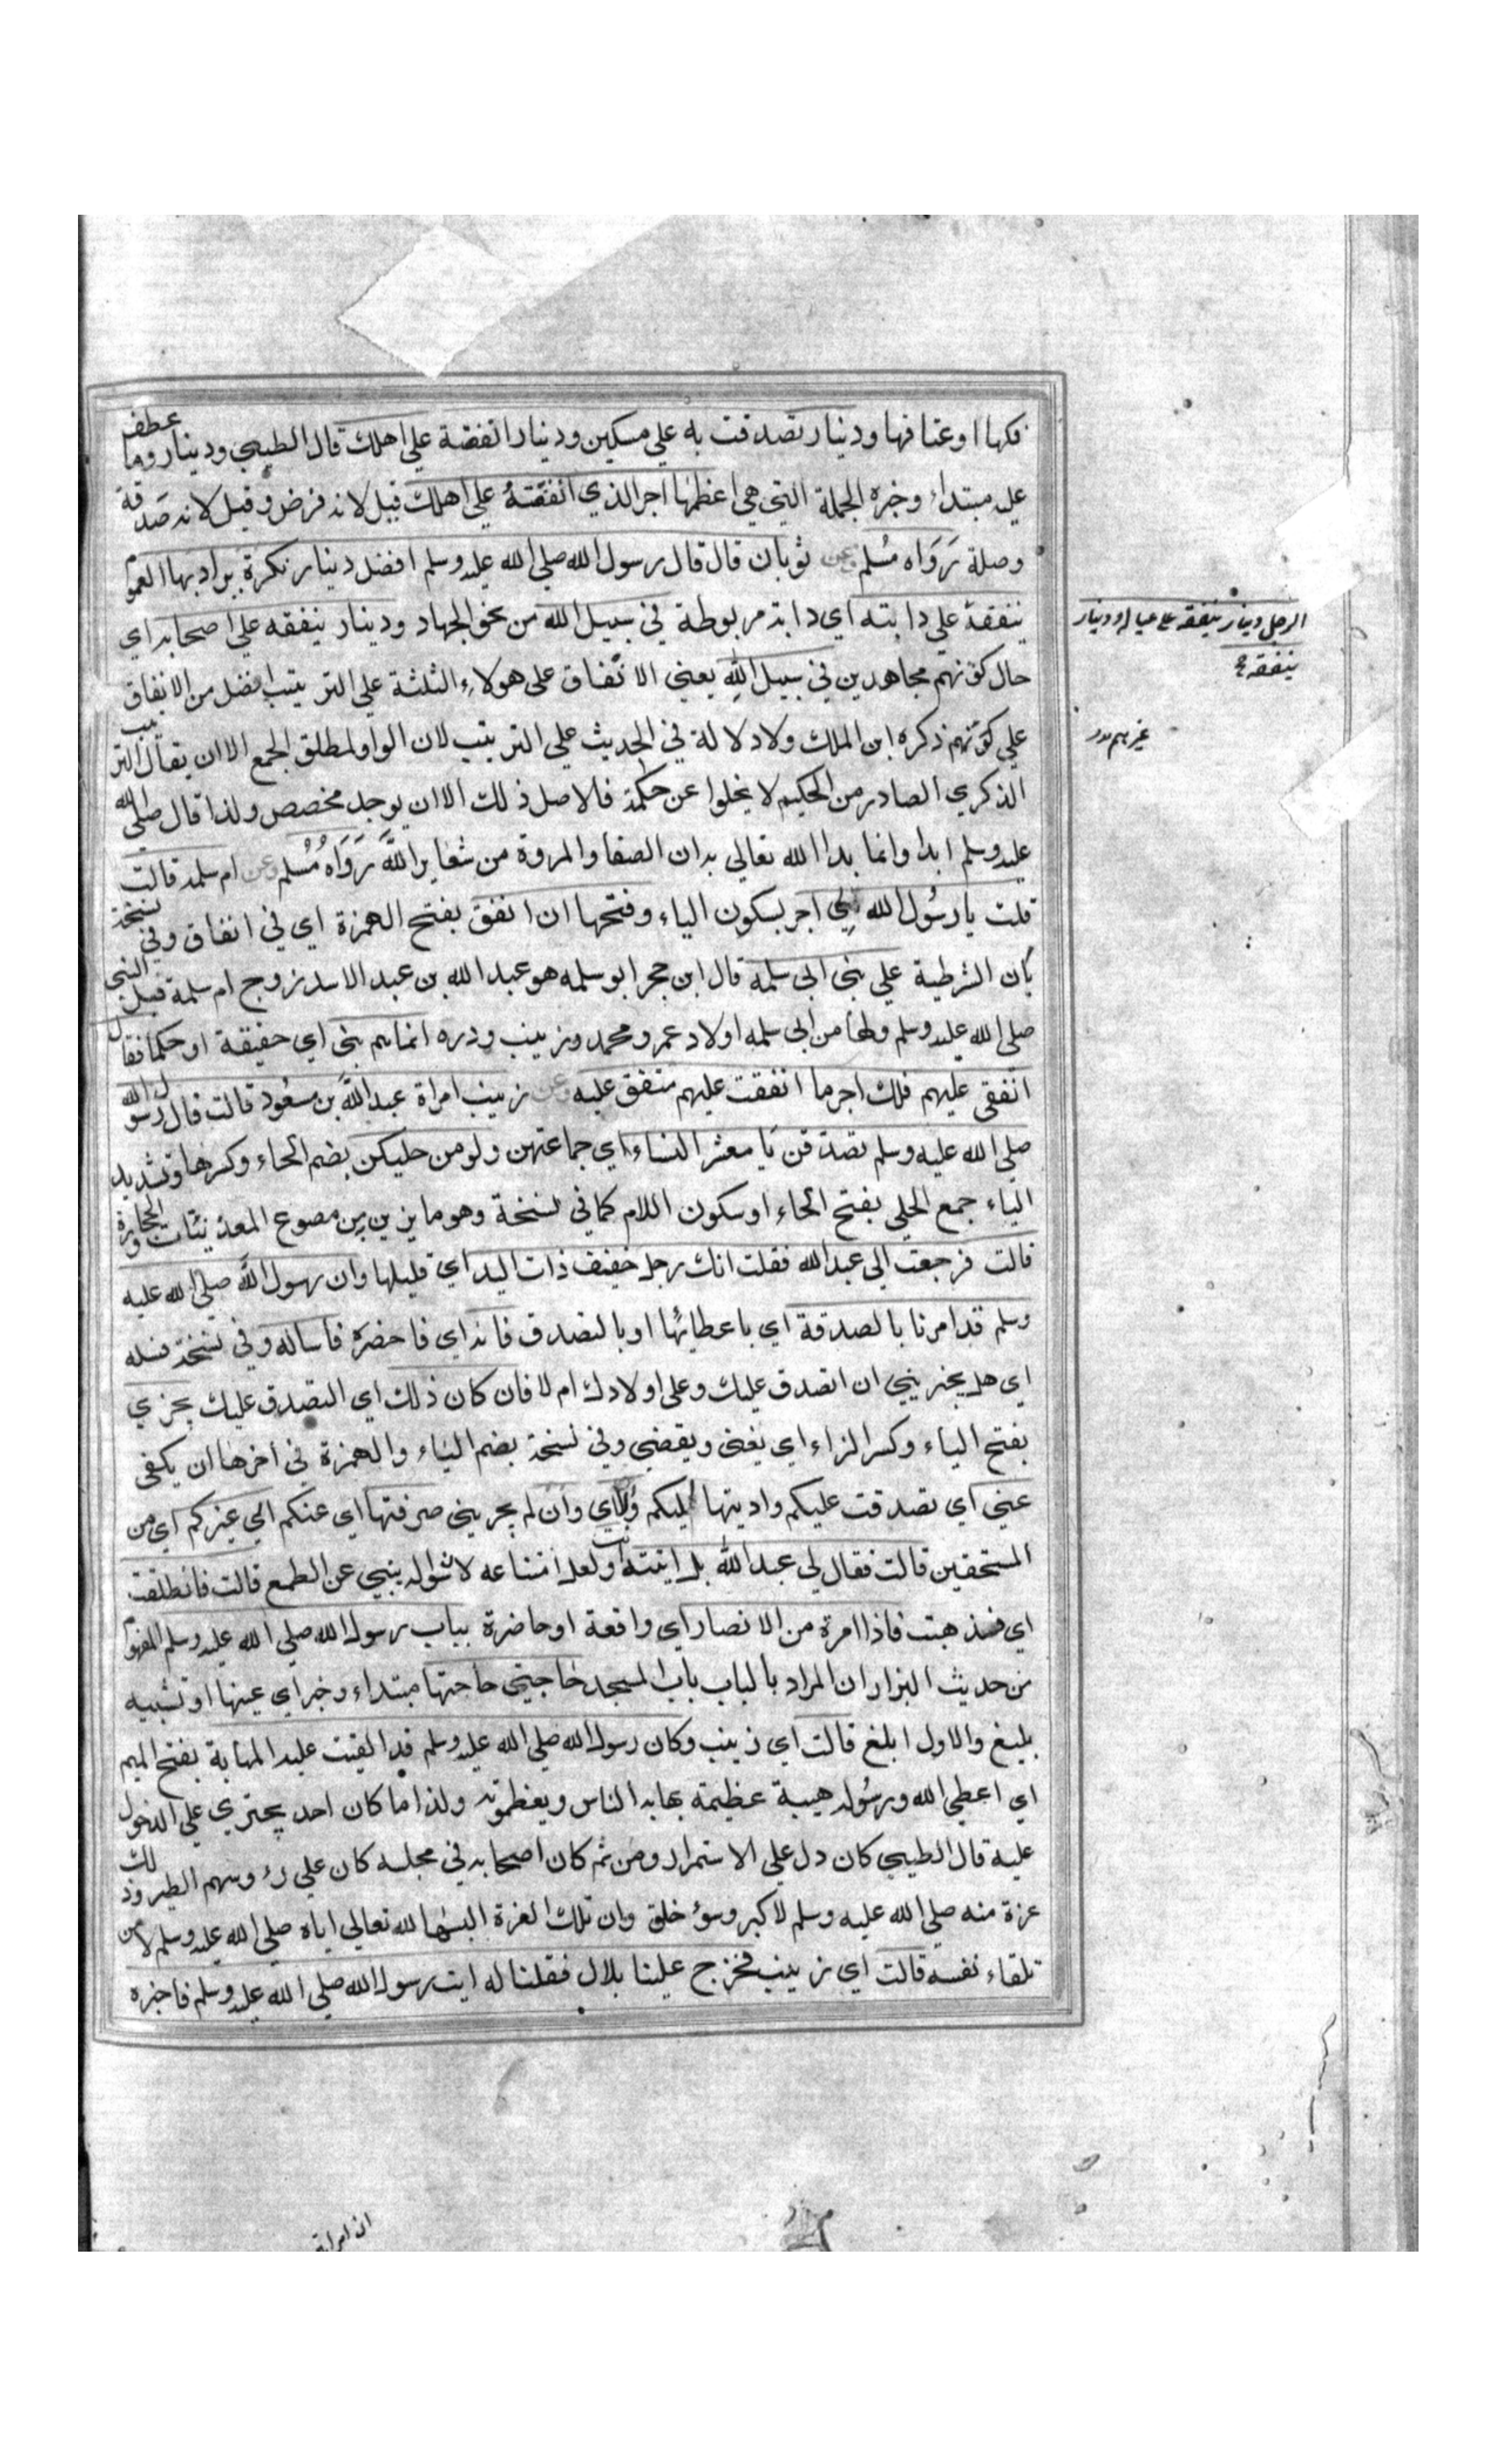 فكها او عتاقها ودينار تصدقت به علي مسكين ودينار انفقته علي اهلك قال الطيبي ودينار وما عطف
عليه مبتداء وخبره الجملة التي هي اعظمها اجر الذي انفقته علي اهلك قيل لانه فرض وقيل لانه صدقة
وصلة رَوَاه مُسلم وعن ثوبان قال قال رسول الله صلي الله عليه وسلم افضل دينار نكرة يراد بها العموم
الرجل دينار ينفقه علي عياله ودينار
ينفقه
ينفقهُ علي دابته اي دابة مربوطة في سبيل الله من نحو الجهاد ودينار ينفقه علي اصحابه اي
حال كونهم مجاهدين في سبيل اللهِ يعني الانفاق على هولاء الثلثة علي الترتيب افضل من الانفاق
علي كونهم ذكره ابن الملك ولا دلالة في الحديث علي الترتيب لان الواو لمطلق الجمع الا ان يقال الترتيب
غيرهم
الذكري الصادر من الحكيم لا يخلوا عن حكمة فالاصل ذلك الا ان يوجد مخصص ولذا قال صلي الله
عليه وسلم ابدا وانما بدا الله تعالي به ان الصفا والمروة من شعاير اللهَّ رَوَاهُ مُسْلم وعن ام سلمة قالت
قلت يا رسُول الله الي اجر بسكون الياء وفتحها ان انفق بفتح الهمزة اي في انفاق وفي نسخة
بان الشرطية علي بني ابي سلمة قال ابن حجر ابو سلمه هو عبد الله بن عبد الاسد زوج ام سلمة قبل النبي
صلي الله عليه وسلم ولها من ابي سلمه اولاد عمر ومحمد وزينب ودره انما هم بني اي حقيقة او حكما فقال
انفقي عليهم فلك اجر ما انفقت عليهم متفق عليه وعن زينب امراة عبد اللهَّ بن مسعُود قالت قال رسول الله
صلي الله عليه وسلم تصدقن يَا معشر النساء اي جماعتهن ولو من حليكن بضم الحاء وكسرها وتشديد
الياء جمع الحلي بفتح الحاء وسكون اللام كما في نسخة وهو ما يزين من مصوع المعدنيّات والحجارة
قالت فرجعت الي عبد الله فقلت انك رجل خفيف ذات اليد اي قليلها وان رسول اللهَّ صلي الله عليه
وسلم قد امرنا بالصدقة اي باعطائها او بالتصدق فاته اي فاحضره فاساله وفي نسخة فسله
اي هل يجزيني ان اتصدق عليك وعلى اولادك ام لا فان كان ذلك اي التصدق عليك يجزي
بفتح الياء وكسر الزاء اي يغني ويقضي وفي نسخة بضم الياء والهمزة في اخرها ان يكفى
عني اي تصدقت عليكم واديتها اليكم والا اي وان لم يجزيني صرفتها اي عنكم الي غيركم اي من
المستحقين قالت فقال لي عبد الله بل ايتيه انت ولعل امتناعه لان سواله ينبي عن الطمع قالت فانطلقت
اي فذهبت فاذا امرة من الانصار اي واقعة او حاضرة بباب رسول الله صلي الله عليه وسلم المفهوم
من حديث البزار ان المراد بالباب باب المسجد حَاجتي حاجتها مبتداء وخبر اي عينها او تشبيه
بليغ والاول ابلغ قالت اي زينب وكان رسول الله صلي الله عليه وسلم قد القيت عليه المهابة بفتح الميم
اي اعطي الله ورسُوله هيبة عظيمة يهابه الناس ويعظمونه ولذا ما كان احد يجتري علي الدخول
عليه قال الطيبي كان دل علي الاستمرار ومن ثم كان اصحابه في مجلسه كان علي رءوسهم الطير وذلك
عزة منه صلي الله عليه وسلم لا كبر وسؤ خلق وان تلك العزة البسها الله تعالي اياه صلي الله عليه وسلم لا من
تلقاء نفسه قالت اي زينب فخرج علينا بلال فقلنا له ايت رسول الله صلي الله عليه وسلم فاخبره
ان امراة